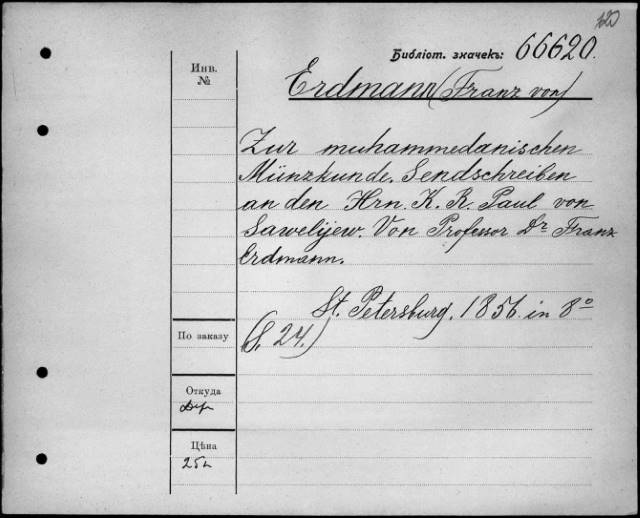 120
Библіот. значекъ: 66620.
Инв.
№
Erdmann (Franz von)
Zur muhammedanischen
Münzkunde. Sendschreiben
an den Hrn. K. R. Paul von
Sawelijew. Von Professor Dr Franz
Erdmann.
St. Petersburg. 1856. in 8°
(S. 24.)
По заказу
Откуда
Цѣна
25к